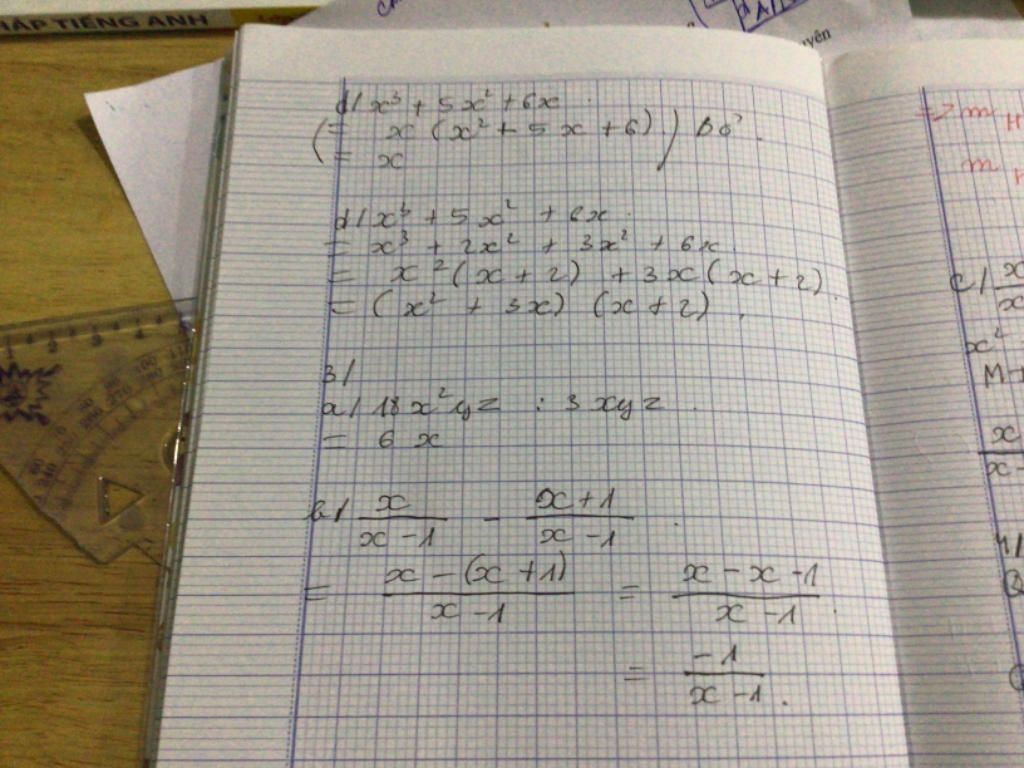 HÁP TIẾNG ANH
yên
d/ x³ + 5x² + 6x.
(= x (x² + 5x + 6)) bỏ.
(= x
d/ x³ + 5x² + 6x.
= x³ + 2x² + 3x² + 6x.
= x²(x + 2) + 3x(x + 2).
= (x² + 3x) (x + 2).
3/
a/ 18x²yz : 3xyz.
= 6x
b/ x/(x - 1) - (x + 1)/(x - 1).
= (x - (x + 1))/(x - 1) = (x - x - 1)/(x - 1).
= -1/(x - 1).
=> m
m
c/ x
x
x²
M
x
x -
4/